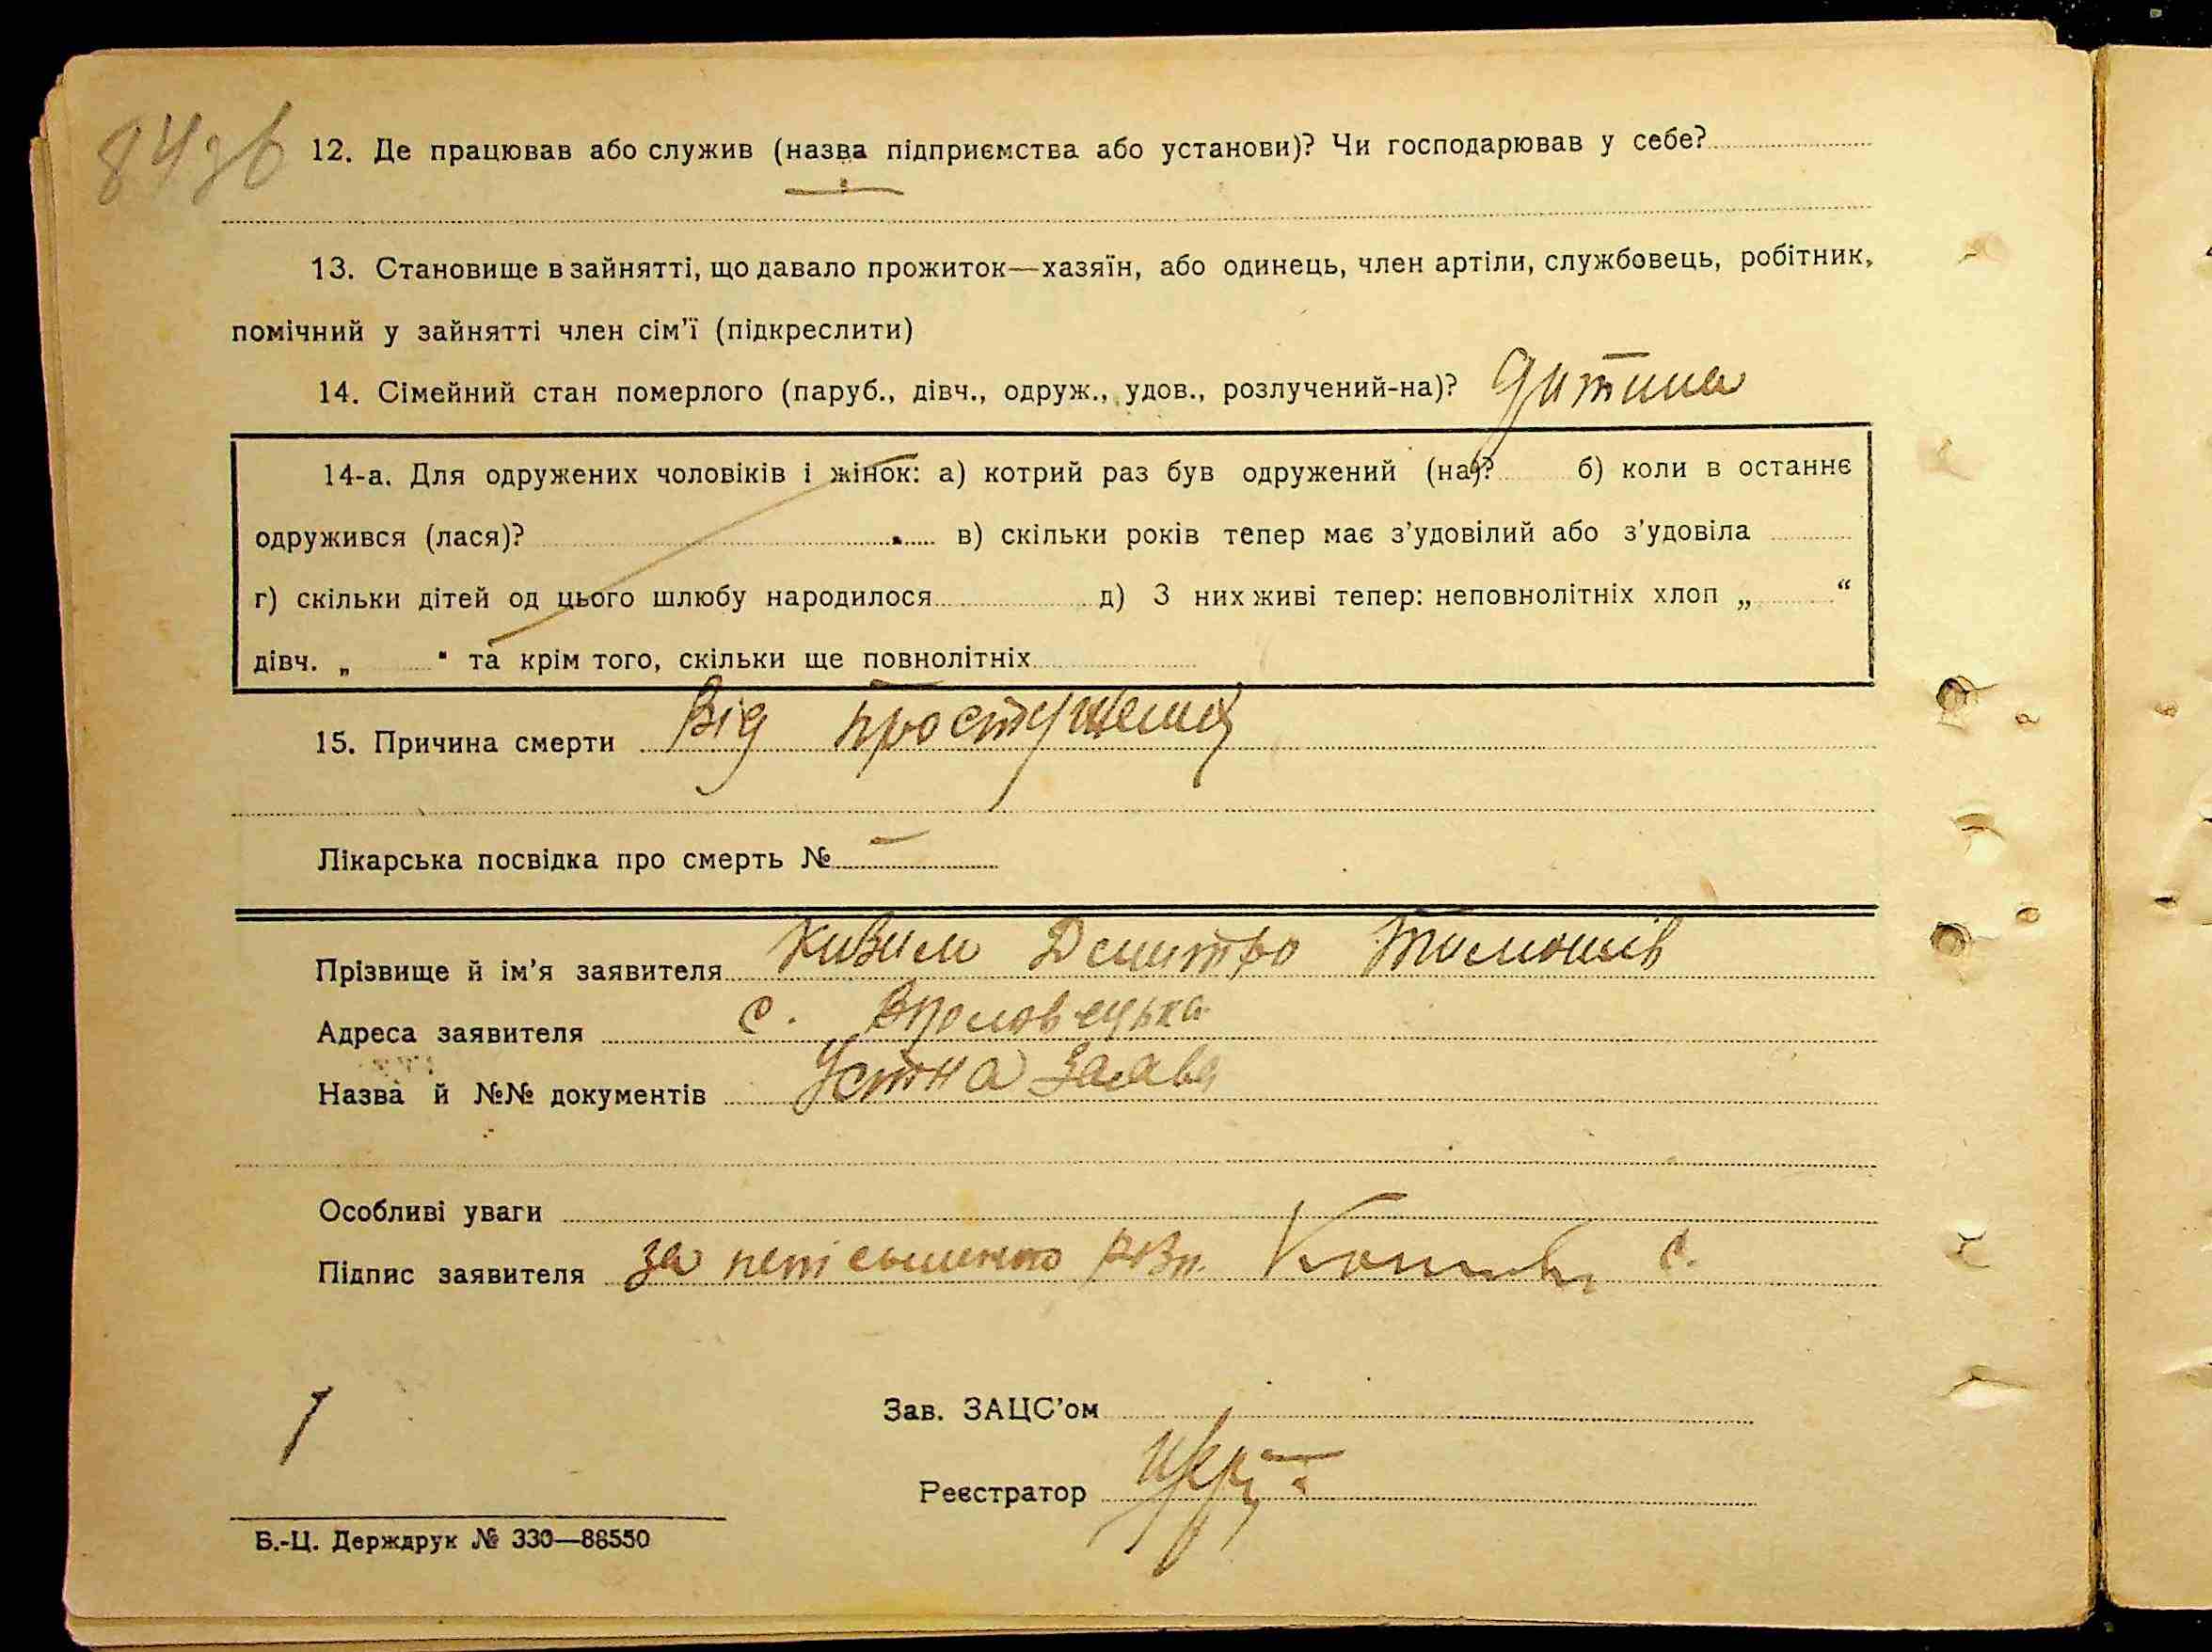 84зв
12. Де працював або служив (назва підприємства або установи)? Чи господарював у себе?
13. Становище в зайнятті, що давало прожиток—хазяїн, або одинець, член артіли, службовець, робітник,
помічний у зайнятті член сім'ї (підкреслити)
14. Сімейний стан померлого (паруб., дівч., одруж., удов., розлучений-на)? Дитина
14-а. Для одружених чоловіків і жінок: а) котрий раз був одружений (на)? б) коли в останнє
одружився (лася)? в) скільки років тепер має з'удовілий або з'удовіла
г) скільки дітей од цього шлюбу народилося д) З них живі тепер: неповнолітніх хлоп „ “
дівч. „ “ та крім того, скільки ще повнолітніх
15. Причина смерти Від
Лікарська посвідка про смерть № —
Прізвище й ім'я заявителя Дмитро
Адреса заявителя с.
Назва й №№ документів Устна заява
Особливі уваги
Підпис заявителя за С.
1
Зав. ЗАЦС'ом
Реєстратор
Б.-Ц. Держдрук № 330—88550